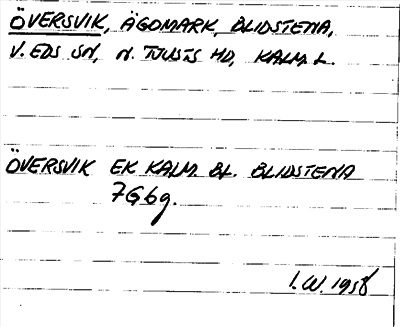 ÖVERSVIK, ÄGOMARK, BLIDSTENA,
V. EDS SN, N. TJUSTS HD, KALM. L.
ÖVERSVIK EK KALM. BL. BLIDSTENA
7G6g.
I.W. 1958